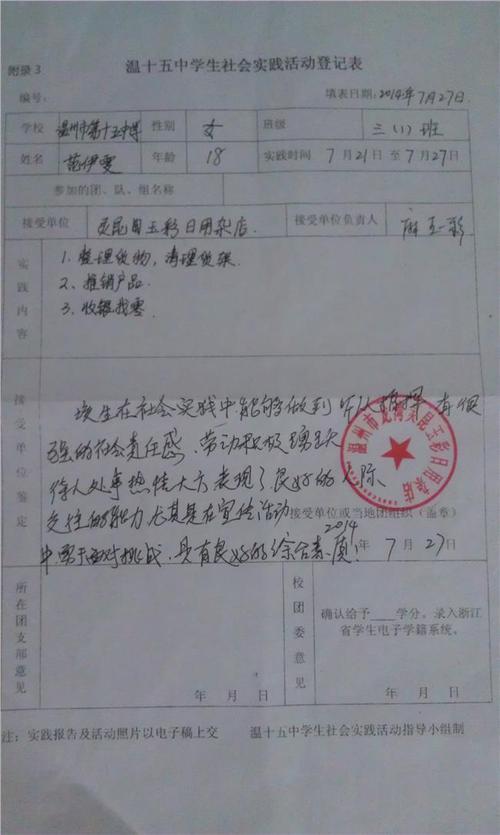 附录3
温十五中学生社会实践活动登记表
编号: 填表日期: 2014年7月27日.
学校 温州市第十五中学 性别 女 班级 三(1)班
姓名 范伊雯 年龄 18 实践时间 7月21日至7月27日
参加的团、队、组名称
接受单位 灵昆自玉彩日用杂店. 接受单位负责人 麻玉彩
实践内容
1. 整理货物,清理货架.
2、推销产品
3、收银找零
接受单位鉴定
该生在社会实践中,能够做到听从指挥 有很
强的社会责任感、劳动积极踊跃
待人处事热情大方表现了良好的人际
交往的能力 尤其是在宣传活动
中勇于面对挑战,具有良好的综合素质!
接受单位或当地团组织(盖章)
2014年7月27日
温州市龙湾灵昆玉彩日用杂店
所在团支部意见
年 月 日
校团委意见
确认给予____学分。录入浙江
省学生电子学籍系统。
年 月 日
注: 实践报告及活动照片以电子稿上交 温十五中学生社会实践活动指导小组制